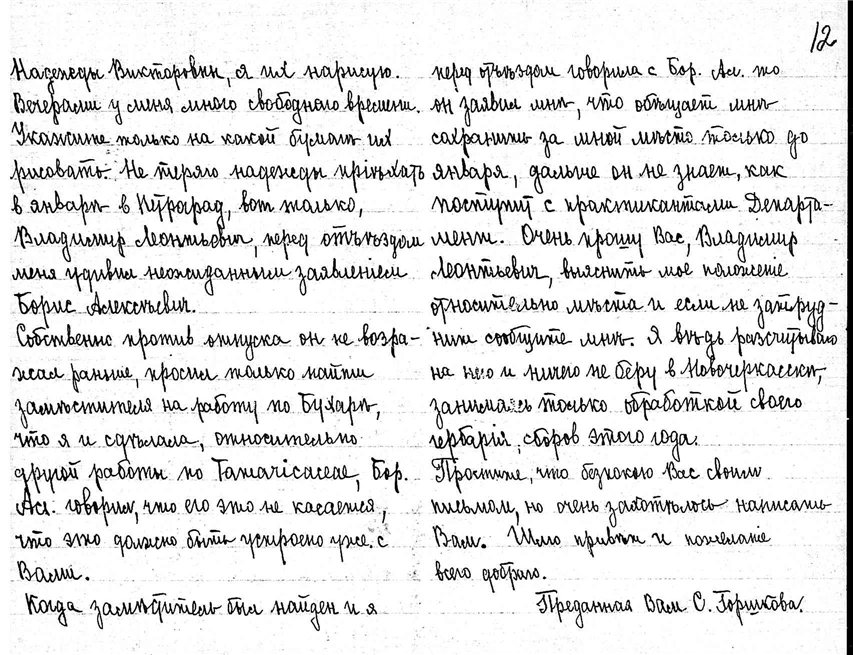 12
Надежды Викторовны, я их нарисую.
Вечерами у меня много свободного времени.
Укажите только на какой бумагѣ их
рисовать. Не теряю надежды пріѣхать
в январѣ в Петроград, вот только,
Владимир Леонтьевич, перед отъѣздом
меня удивил неожиданным заявленіем
Борис Алексѣевич.
Собственно против отпуска он не возра-
жал раньше, просил только найти
замѣстителя на работу по Бухарѣ,
что я и сдѣлала, относительно
другой работы по Tamaricaceae, Бор.
Ал. говорил, что его это не касается,
что это должно быть устроено уже с
Вами.
Когда замѣститель был найден и я
перед отъѣздом говорила с Бор. Ал. то
он заявил мнѣ, что обѣщает мнѣ
сохранить за мной мѣсто только до
января, дальше он не знает, как
поступит с практикантами Департа-
мент. Очень прошу Вас, Владимир
Леонтьевич, выяснить мое положеніе
относительно мѣста и если не затруд-
нит сообщите мнѣ. Я вѣдь разсчитываю
на него и ничего не беру в Новочеркасскѣ,
занимаясь только обработкой своего
гербарія, сборов этого года.
Простите, что безпокою Вас своим
письмом, но очень захотѣлось написать
Вам. Шлю привѣт и пожеланіе
всего добраго.
Преданная Вам С. Горшкова.